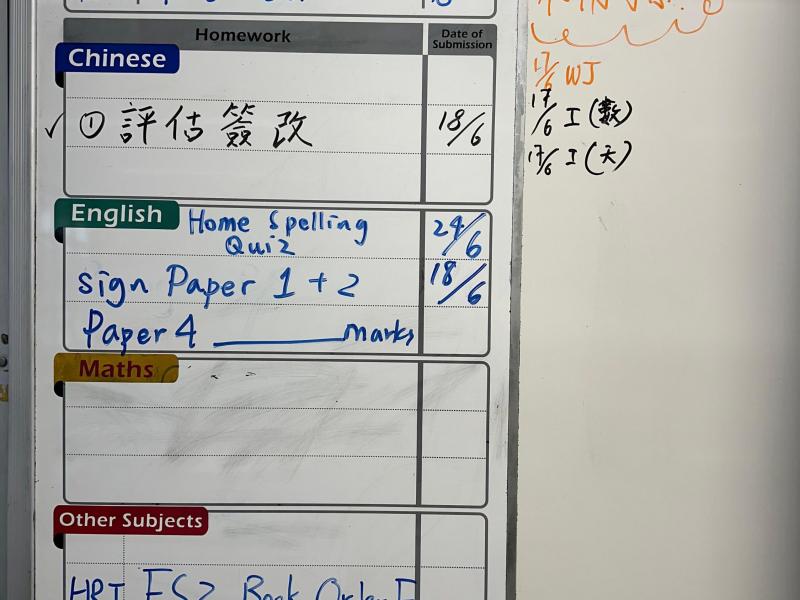 Homework
Date of Submission
Chinese
✓ ① 評估簽改 18/6
English
Home Spelling Quiz 24/6
sign Paper 1 + 2 18/6
Paper 4 ______ marks
Maths
Other Subjects
17/6 WJ
17/6 I (數)
17/6 I (天)